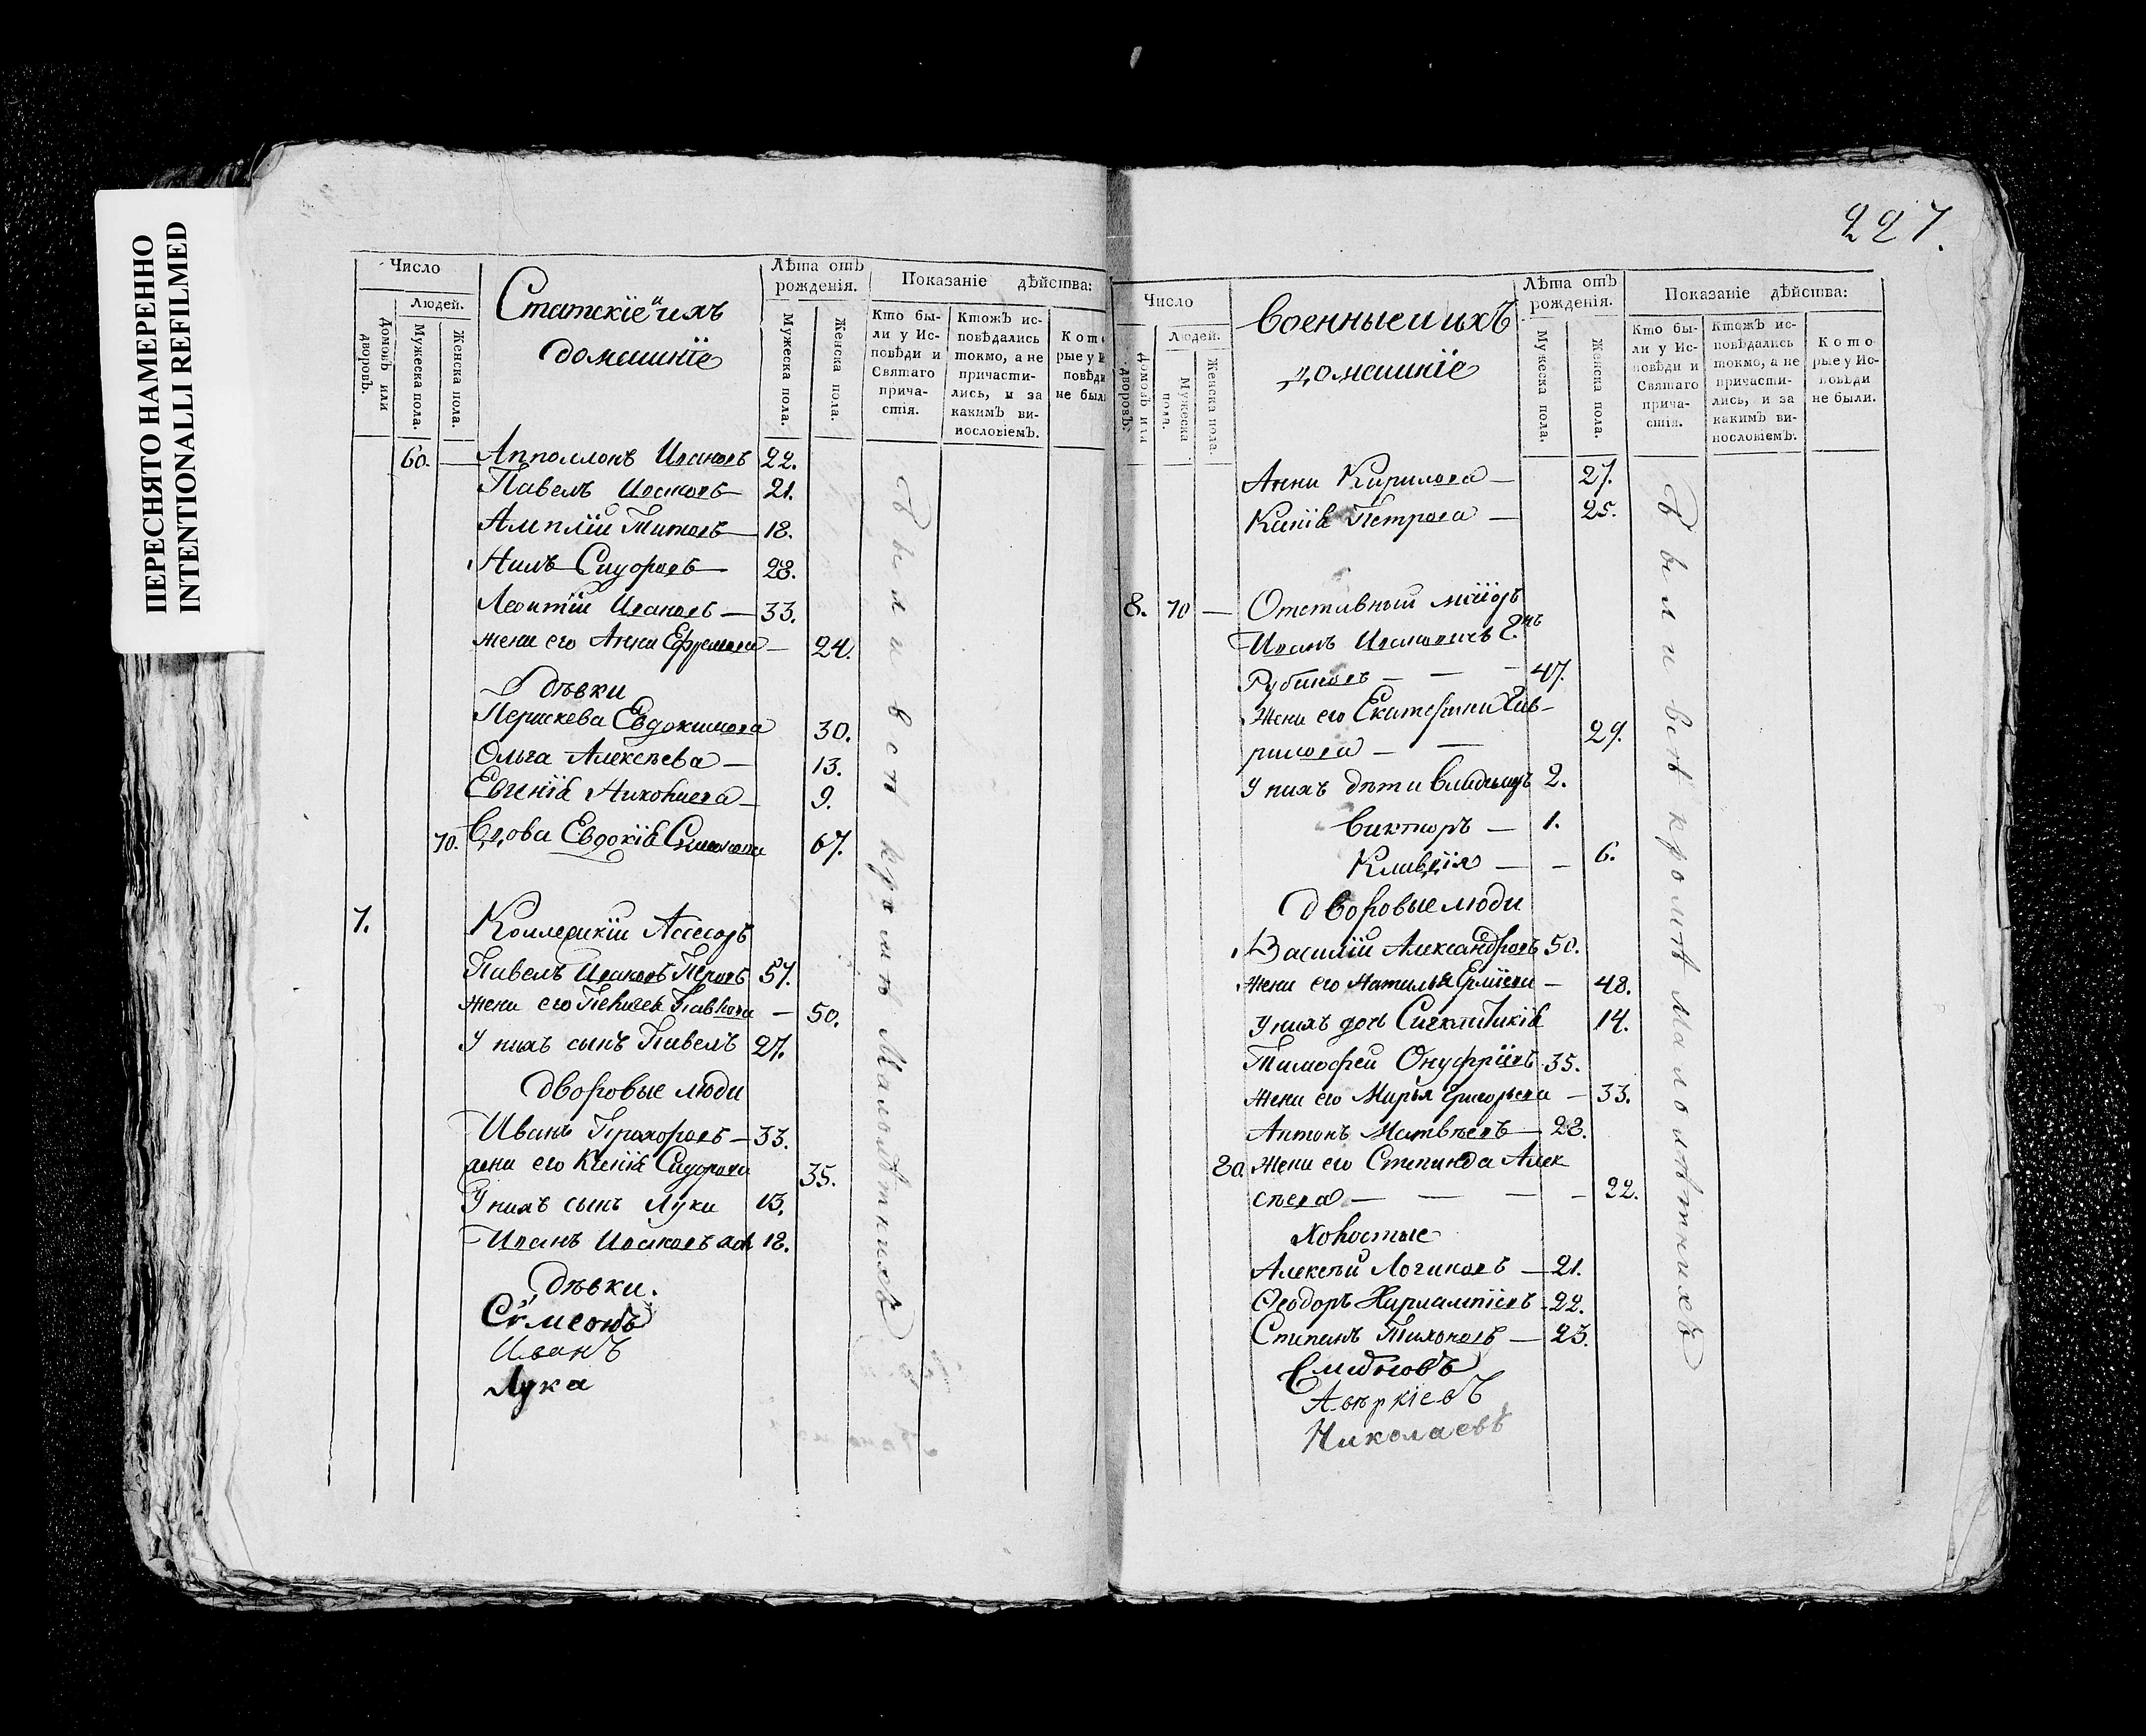 ПЕРЕСНЯТО НАМЕРЕННО
INTENTIONALLI REFILMED
Число
Людей.
Домовъ или дворовъ.
Мужеска пола.
Женска пола.
Статскіе и ихъ
домашніе
Лѣта отъ рожденія.
Мужеска пола.
Женска пола.
Показаніе дѣйства:
Кто бы-
ли у Ис-
повѣди и
Святаго
прича-
стія.
Ктожъ ис-
повѣдались
токмо, а не
причасти-
лись, и за
какимъ ви-
нословіемъ.
Кото
рые у И
повѣди
не были
60. — Апполлонъ Ивановъ 22.
Павелъ Ивановъ — 21.
Амплій Титовъ — 18.
Нилъ Сидоровъ — 28.
Леонтій Ивановъ — 33.
жена его Анна Ефремова — 24.
Дѣвки
Евдокимова 30.
Ольга Алексѣева — 13.
Евгенія 9.
70. Вдова Евдокія 67.
7. Коллежскій Ассесоръ
Павелъ Ивановъ 57.
жена его — 50.
У нихъ сынъ Павелъ 27.
Дворовые люди
Иванъ Прохоровъ — 33.
жена его Ксенія Сидорова 35.
У нихъ сынъ Лука 13.
Иванъ Ивановъ 18.
Дѣвки.
Сѵмеонъ
Иванъ
Лука
Были всѣ кромѣ малолѣтнихъ
227.
Число
Людей.
Домовъ или дворовъ.
Мужеска пола.
Женска пола.
Военные и ихъ
домашніе
Лѣта отъ рожденія.
Мужеска пола.
Женска пола.
Показаніе дѣйства:
Кто бы-
ли у Ис-
повѣди и
Святаго
прича-
стія.
Ктожъ ис-
повѣдались
токмо, а не
причасти-
лись, и за
какимъ ви-
нословіемъ.
Кото
рые у Ис-
повѣди
не были.
Анна Кирилова — 27.
Ксенія Петрова — 25.
8. 70 — Отставный маіоръ
Иванъ Ивановичъ
Рубановъ — — — 47.
Жена его Екатерина Гав-
рилова — — 29.
У нихъ дѣти Владимиръ 2.
Викторъ — 1.
Клавдія — — 6.
Дворовые люди
Василій Александровъ 50.
жена его Наталья — 48.
У нихъ дочь Синклитикія 14.
Тимофей Онуфріевъ 35.
жена его Марья Григорьева — 33.
Антонъ Матвѣевъ — 28.
80. Жена его Степанида Алек
сѣева — — — — 22.
Холостые
Алексѣй Логиновъ — 21.
Ѳеодоръ Харлампіевъ 22.
Степанъ Тихоновъ — 23.
Аверкіевъ
Николаевъ
Были всѣ кромѣ малолѣтнихъ